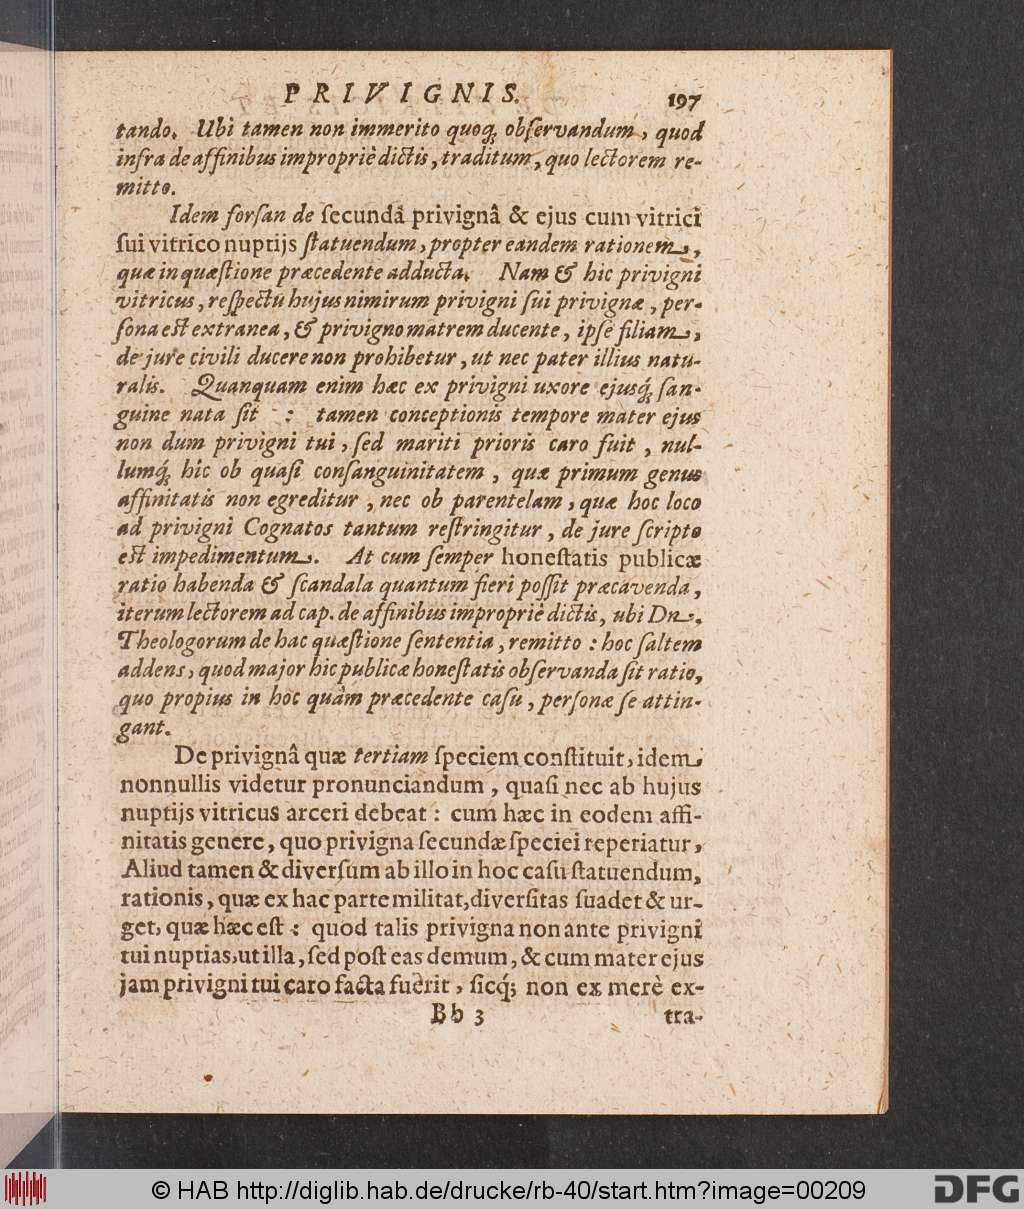 PRIVIGNIS. 197
tando. Ubi tamen non immerito quoq; obſervandum, quod
infra de affinibus impropriè dictis, traditum, quo lectorem re-
mitto.
Idem forſan de ſecundâ privignâ & ejus cum vitrici
ſui vitrico nuptijs ſtatuendum, propter eandem rationem,
quæ in quæſtione præcedente adducta. Nam & hic privigni
vitricus, reſpectu hujus nimirum privigni ſui privignæ, per-
ſona eſt extranea, & privigno matrem ducente, ipſe filiam,
de jure civili ducere non prohibetur, ut nec pater illius natu-
ralis. Quanquam enim hæc ex privigni uxore ejusq́; ſan-
guine nata ſit : tamen conceptionis tempore mater ejus
non dum privigni tui, ſed mariti prioris caro fuit, nul-
lumq́; hic ob quaſi conſanguinitatem, quæ primum genus
affinitatis non egreditur, nec ob parentelam, quæ hoc loco
ad privigni Cognatos tantum reſtringitur, de jure ſcripto
eſt impedimentum. At cum ſemper honeſtatis publicæ
ratio habenda & ſcandala quantum fieri poſſit præcavenda,
iterum lectorem ad cap. de affinibus impropriè dictis, ubi Dn.
Theologorum de hac quæſtione ſententia, remitto : hoc ſaltem
addens, quod major hic publicæ honeſtatis obſervanda ſit ratio,
quo propius in hoc quàm præcedente caſu, perſonæ ſe attin-
gant.
De privignâ quæ tertiam ſpeciem conſtituit, idem
nonnullis videtur pronunciandum, quaſi nec ab hujus
nuptijs vitricus arceri debeat : cum hæc in eodem affi-
nitatis genere, quo privigna ſecundæ ſpeciei reperiatur,
Aliud tamen & diverſum ab illo in hoc caſu ſtatuendum,
rationis, quæ ex hac parte militat, diverſitas ſuadet & ur-
get, quæ hæc eſt : quod talis privigna non ante privigni
tui nuptias, ut illa, ſed poſt eas demum, & cum mater ejus
jam privigni tui caro facta fuerit, ſicq́; non ex merè ex-
Bb 3 tra-
© HAB http://diglib.hab.de/drucke/rb-40/start.htm?image=00209
DFG